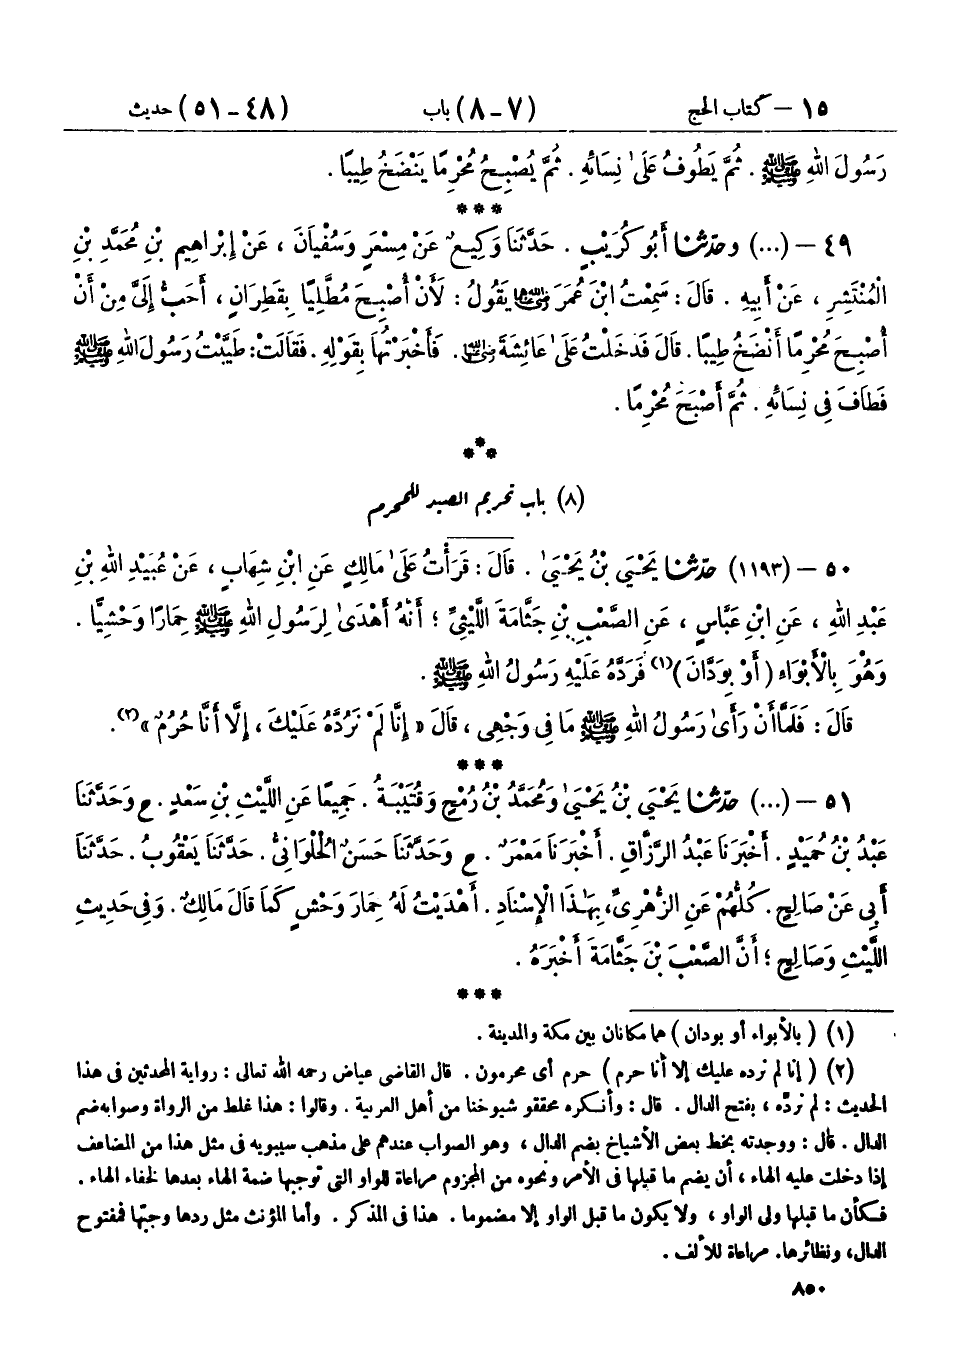 ١٥ – كتاب الحج (٧ – ٨) باب (٤٨ – ٥١) حديث
رَسُولَ اللهِ ﷺ . ثُمَّ يَطُوفُ عَلَىٰ نِسَائِهِ . ثُمَّ يُصْبِحُ مُحْرِمًا يَنْضَخُ طِيبًا .
***
٤٩ – (...) وحدّثنا أَبُو كُرَيْبٍ . حَدَّثَنَا وَكِيعٌ عَنْ مِسْعَرٍ وَسُفْيَانَ ، عَنْ إِبْرَاهِيمَ بْنِ مُحَمَّدِ بْنِ
الْمُنْتَشِرِ ، عَنْ أَبِيهِ . قَالَ : سَمِعْتُ ابْنَ عُمَرَ رضي الله عنهما يَقُولُ : لَأَنْ أُصْبِحَ مُطَّلِيًا بِقَطِرَانٍ ، أَحَبُّ إِلَىَّ مِنْ أَنْ
أُصْبِحَ مُحْرِمًا أَنْضَخُ طِيبًا . قَالَ فَدَخَلْتُ عَلَىٰ عَائِشَةَ رضي الله عنها . فَأَخْبَرْتُهَا بِقَوْلِهِ . فَقَالَتْ : طَيَّبْتُ رَسُولَ اللهِ ﷺ
فَطَافَ فِى نِسَائِهِ . ثُمَّ أَصْبَحَ مُحْرِمًا .
***
(٨) باب تحريم الصيد للمحرم
٥٠ – (١١٩٣) حدّثنا يَحْيَى بْنُ يَحْيَىٰ . قَالَ : قَرَأْتُ عَلَىٰ مَالِكٍ عَنِ ابْنِ شِهَابٍ ، عَنْ عُبَيْدِ اللهِ بْنِ
عَبْدِ اللهِ ، عَنِ ابْنِ عَبَّاسٍ ، عَنِ الصَّعْبِ بْنِ جَثَّامَةَ اللَّيْثِىِّ ؛ أَنَّهُ أَهْدَىٰ لِرَسُولِ اللهِ ﷺ حِمَارًا وَحْشِيًّا .
وَهُوَ بِالْأَبْوَاءِ ( أَوْ بِوَدَّانَ )(١) فَرَدَّهُ عَلَيْهِ رَسُولُ اللهِ ﷺ .
قَالَ : فَلَمَّا أَنْ رَأَىٰ رَسُولُ اللهِ ﷺ مَا فِى وَجْهِى ، قَالَ « إِنَّا لَمْ نَرُدَّهُ عَلَيْكَ ، إِلَّا أَنَّا حُرُمٌ »(٢) .
***
٥١ – (...) حدّثنا يَحْيَى بْنُ يَحْيَىٰ وَمُحَمَّدُ بْنُ رُمْحٍ وَقُتَيْبَةُ . جَمِيعًا عَنِ اللَّيْثِ بْنِ سَعْدٍ . ح وَحَدَّثَنَا
عَبْدُ بْنُ حُمَيْدٍ . أَخْبَرَنَا عَبْدُ الرَّزَّاقِ . أَخْبَرَنَا مَعْمَرٌ . ح وَحَدَّثَنَا حَسَنٌ الْحُلْوَانِىُّ . حَدَّثَنَا يَعْقُوبُ . حَدَّثَنَا
أَبِى عَنْ صَالِحٍ . كُلُّهُمْ عَنِ الزُّهْرِىِّ ، بِهَٰذَا الْإِسْنَادِ . أَهْدَيْتُ لَهُ حِمَارَ وَحْشٍ كَمَا قَالَ مَالِكٌ . وَفِى حَدِيثِ
اللَّيْثِ وَصَالِحٍ ؛ أَنَّ الصَّعْبَ بْنَ جَثَّامَةَ أَخْبَرَهُ .
***
(١) ( بالأبواء أو بودان ) هما مكانان بين مكة والمدينة .
(٢) ( إنا لم نرده عليك إلا أنا حرم ) حرم أى محرمون . قال القاضى عياض رحمه الله تعالى : رواية المحدثين فى هذا
الحديث : لم نردّه ، بفتح الدال . قال : وأنكره محققو شيوخنا من أهل العربية . وقالوا : هذا غلط من الرواة وصوابه ضم
الدال . قال : ووجدته بخط بعض الأشياخ بضم الدال ، وهو الصواب عندهم على مذهب سيبويه فى مثل هذا من المضاعف
إذا دخلت عليه الهاء ، أن يضم ما قبلها فى الأمر ونحوه من المجزوم مراعاة للواو التى توجبها ضمة الهاء بعدها لخفاء الهاء .
فكأن ما قبلها ولى الواو ، ولا يكون ما قبل الواو إلا مضموما . هذا فى المذكر . وأما المؤنث مثل ردها وجبّها فمفتوح
الدال، ونظائرها. مراعاة للألف .
٨٥٠